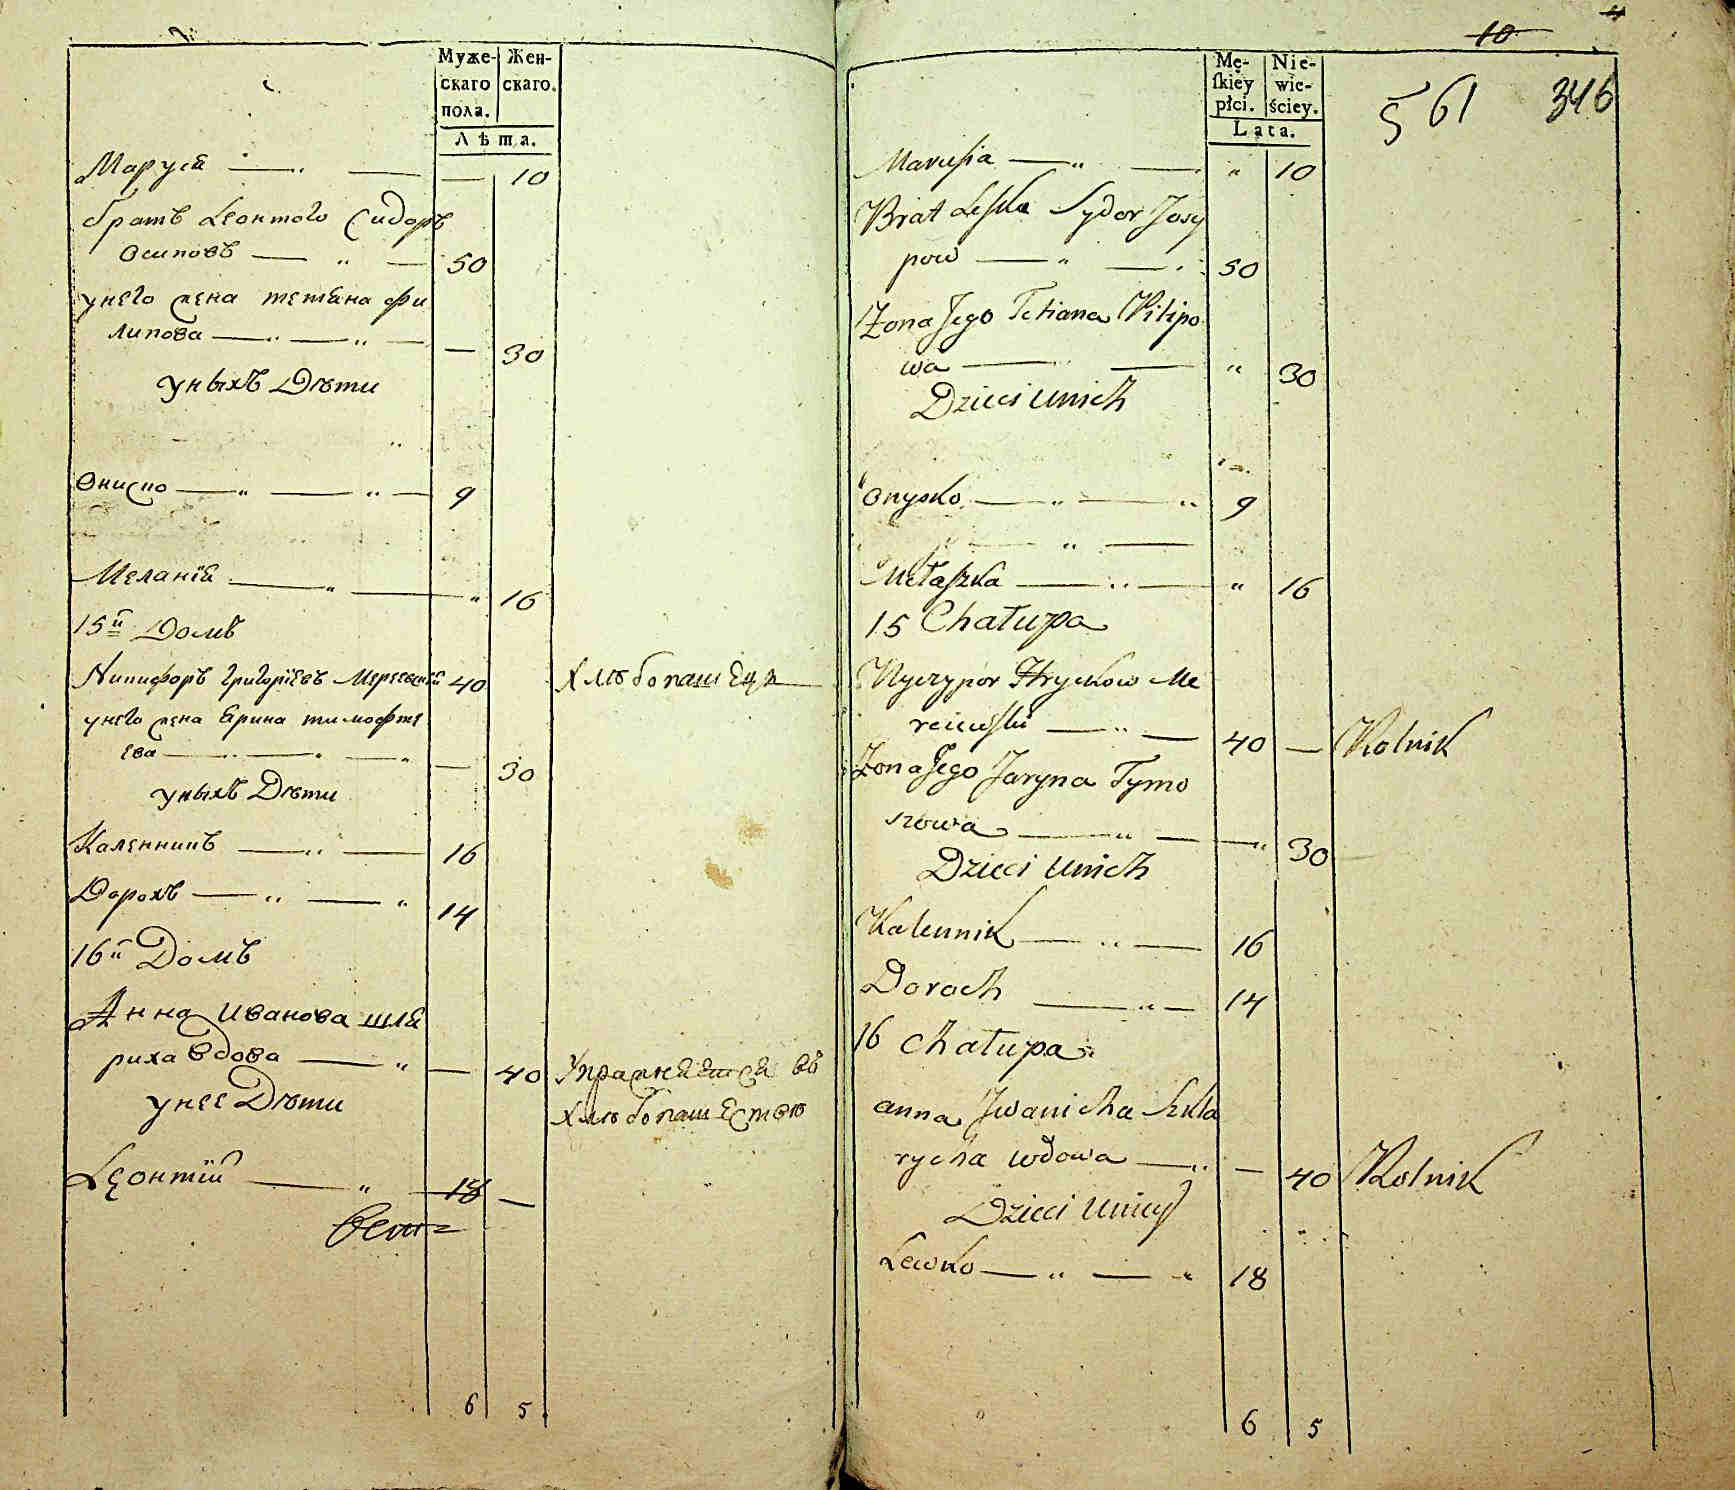 Муже-
скаго
пола.
Жен-
скаго.
Лѣта.
Маруся — „ — — 10
братъ Леонтого Сидоръ
Осиповъ — „ — 50
унего жена тетяна фи
липова — „ — „ — — 30
уныхъ Дѣти
Ониско — „ — „ — 9
Меланія — „ — „ 16
15й Домъ
Никифоръ Григоріевъ Меревскій 40 хлѣбопашецъ
унего жена Ярина тимофѣе
ева — „ — „ — „ — 30
уныхъ Дѣти
Каленникъ — „ — 16
Дорохъ — „ — „ 14
16й Домъ
Анна Иванова шкля
риха вдова — „ — 40 Упражняется въ
хлѣбопашествѣ
унее Дѣти
Леонтій — „ — 18 —
6 5
10
Mę-
skiey
płci.
Nie-
wie-
ściey.
Lata.
561 346
Marusia — „ — „ 10
Brat Leśka Sydor Josy
pow — „ — 50
Żona Jego Tetiana Pilipo
wa — — „ 30
Dzieci Unich
Onysko — „ — „ 9
— „ —
Melaszka — „ — „ 16
15 Chałupa
Nyczypor Hryckow Me
reiewski — „ — 40 — Rolnik
Żona Jego Jaryna Tymo
szowa — „ — — „ 30
Dzieci Unich
Kalennik — „ — 16
Doroch — „ — 14
16 Chałupa
anna Jwanicha Szkla
rycha wdowa — „ — 40 Rolnik
Dzieci Uniey
Lewko — „ — „ 18
6 5